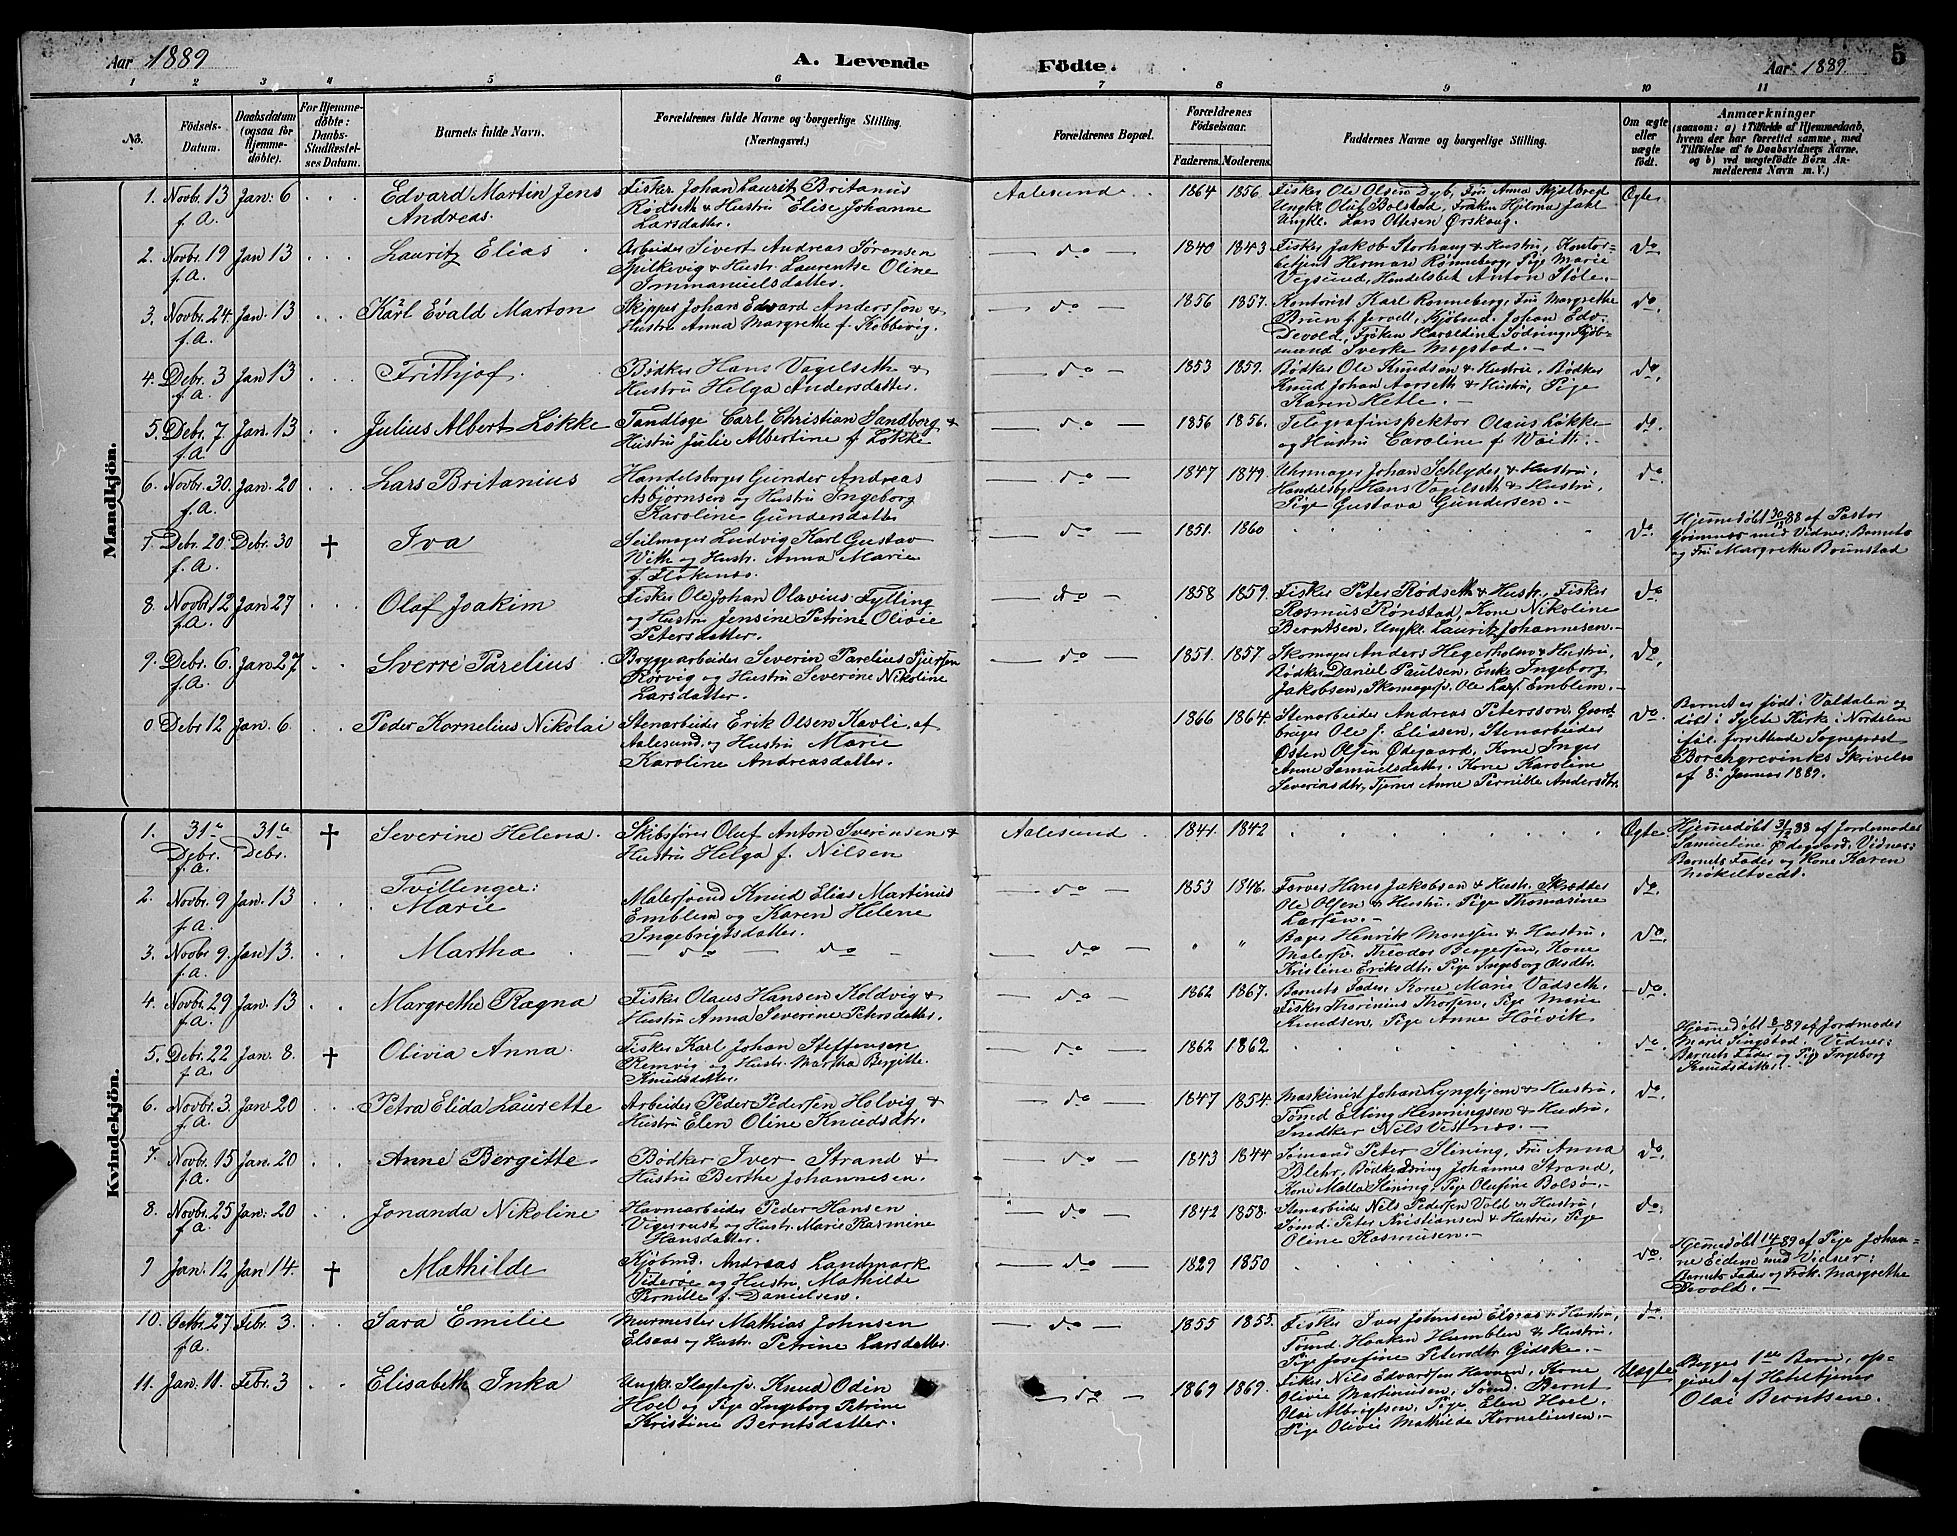 Aar 1889
A. Levende Fødte.
Aar 1889.
5
1 2 3 4 5 6 7 8 9 10 11
No.
Fødsels-Datum.
Daabsdatum (ogsaa for Hjemmedøbte).
For Hjemmedøbte: Daabs-Stadfæstelses Datum.
Barnets fulde Navn.
Forældrenes fulde Navne og borgerlige Stilling. (Næringsvei.)
Forældrenes Bopæl.
Forældrenes Fødselsaar.
Faderens. Moderens.
Faddernes Navne og borgerlige Stilling.
Om ægte eller uægte født.
Anmærkninger
(saasom: a) i Tilfælde af Hjemmedaab, hvem der har forrettet samme, med Tilføielse af to Daabsvidners Navne, og b) ved uægtefødte Børn Anmelderens Navn m. V.)
Mandkjön.
1. Novbr. 13 f. A. Jan: 6 Edvard Martin Jens Andreas.
Fisker Johan Lauritz Britanius
Rödseth & Hustru Elise Johanne
Larsdatter.
Aalesund. 1864 1856.
Fisker Ole Olsen Dyb, Fru Anna Skjelbred
Ungkl. Oluf Bolstad, Frøken Hjelma Jahl
Ungkl. Lars Ottesen Ørskoug.
Ægte
2. Novbr. 19 f. A. Jan 13 Lauritz Elias
Arbeider Sivert Andreas Sørensen
Spilkevig & Hustr. Laurentse Oline
Immanuelsdatter.
do 1840 1843
Fisker Jakob Storhaug & Hustru, Kontor-
betjent Herman Rønneberg, Pige Marie
Vegsund, Handelsbet. Anton Støle.
do
3. Novbr. 24 f. A. Jan. 13 Karl Evald Marton
Skipper Johan Edvard Andersson &
Hustru Anna Margrethe f. Kobbevig.
do 1856 1857.
Kontorist Karl Ronneberg, Fru Margrethe
Brun f. Jervell, Kjøbmd. Johan Edv.
Devold, Frøken Haraldine Sødring, Kjøb-
mand Sverke Mogstad.
do.
4. Debr. 3 f. A. Jan 13 Frithjof.
Bödker Hans Vagelseth &
Hustru Helga Andersdatter.
do 1853 1859.
Bödker Ole Knudsen & Hustru, Bödker
Knud Johan Aarseth & Hustru, Pige
Karen Hetle.
do.
5. Debr. 7 f. A. Jan. 13 Julius Albert Løkke
Tandlæge Carl Christian Sandborg &
Hustru Julie Albertine f. Løkke
do 1856 1856.
Telegrafinspektør Olaus Løkke
og Hustru Caroline f. Waitt.
do.
6. Novbr. 30. f. A. Jan. 20 Lars Britanius
Handelsborger Gunder Andreas
Asbjørnsen og Hustru Ingeborg
Karoline Gundersdatter
do 1847 1849.
Uhrmager Johan Schlyder & Hustru,
Handelsbg. Hans Vagelseth & Hustru,
Pige Gustava Gundersen.
do
7. Debr. 20. f. A. Debr. 30 † Iva
Seilmager Ludvig Karl Gustav
With og Hustr. Anna Marie
f. Flokenes.
do 1851. 1860
do.
Hjemmedøbt 30/12 88 af Pastor
Grimnes med Vidner: Barnets
og Fru Margrethe Brunstad
8 Novbr. 12 f. A. Jan 27 Olaf Joakim
Fisker Ole Johan Olavius Fylling
og Hustru Jensine Petrine Olivie
Petersdatter.
do 1858 1859.
Fisker Peter Rødseth & Hustr., Fisker
Rasmus Rønstad, Kone Nikoline
Berntsen, Ungkl. Lauritz Johannesen.
do
9. Debr. 6. f. A. Jan 27 Sverre Parelius
Bryggearbeider Severin Parelius
Rörvig og Hustru Severine Nikoline
Larsdatter.
do 1851. 1857
Skomager Anders Hegerholm & Hustru,
Bødker Daniel Paulsen, Enke Ingeborg
Jakobsen, Skomagersv. Ole Lars. Emblem.
do.
0 Debr 12 Jan. 6. Peder Kornelius Nikolai
Stenarbeider Erik Olsen Kavli af
Aalesund, og Hustru Marie
Karoline Andreasdatter.
1866 1864.
Stenarbeider Andreas Petersson, Gaard-
bruger Ole J. Eliasen, Stenarbeider
Østen Olsen Ødegaard, Kone Inger
Anne Samuelsdatter, Kone Karoline
Severinsdtr, Tjener Anne Pernille Andersdtr.
do.
Barnet er født i Valdalen og
døbt i Sylte Kirke i Nordalen
føl. forrettende Sogneprest
Borchgrevinks Skrivelse
af 8. Januar 1889.
Kvindekjön.
1. 31te Debr. f. A. 31te Debr. † Severine Helena.
Skibsfører Oluf Anton Sverensen &
Hustru Helga f. Nilsen
Aalesund. 1841. 1842
Ægte.
Hjemmedøbt 31/12 88 af Jordemoder
Samueline Ødegaard. Vidner:
Barnets Fader og Kone Karen
2. Novbr. 9 f. A. Jan. 13 Tvillinger:
Marie
Malersvend Knud Elias Martinus
Emblem og Karen Helene
Ingebrigtsdatter.
do 1853 1846.
Farver Hans Jakobsen & Hustr. Skrædder
Ole Olsen & Hustru. Pige Thomasine
Larsen.
do.
3. Novbr. 9. f. A. Jan. 13. Martha do do
do " "
Bager Henrik Monsen & Hustru,
Malersv. Theodor Bergersen, Kone
Kristine Eriksdtr. Pige Ingeborg Olsdtr.
do.
4. Novbr. 29 f. A. Jan. 13 Margrethe Ragna
Fisker Olaus Hansen Koldvig &
Hustru Anna Severine Petersdatter.
do 1862 1867.
Barnets Fader, Kone Marie Vadseth,
Fisker Thorinius Thorsen, Pige Marie
Knudsen, Pige Anne Höivik
do.
5. Debr. 22 f. A. Jan. 8. † Olivia Anna.
Fisker Karl Johan Steffensen
Remvig og Hustr. Martha Bergitte
Knudsdatter.
do 1862 1862
do
Hjemmedøbt 8/1 89 af Jordmoder
Marie Singstad. Vidner:
Barnets Fader og Pige Ingeborg
Knudsdatter.
6. Novbr. 3. f. A. Jan. 20 Petra Elida Laurette
Arbeider Peder Pedersen Holvig &
Hustru Elen Oline Knudsdtr.
do 1847 1854.
Maskinist Johan Lynghjem & Hustru,
Tömd. Elling Henningsen & Hustru,
Snedker Nils Vestnes.
do
7. Novbr. 15 f. A. Jan. 20 Anne Bergitte
Bødker Iver Strand &
Hustru Berthe Johannesen.
do 1843 1844
Tømmand Peter Slining, Fru Anna
Blehr, Bødkerdreng Johannes Strand,
Kone Malla Slining, Pige Olufine Bolsø.
do.
8. Novbr. 25 f. A. Jan: 20 Jonanda Nikoline
Havnearbeider Peder Hansen
Vigerust og Hustr. Maris Rasmine
Hansdatter.
do 1842 1858.
Stenarbeider Nils Pedersen Vold & Hustru,
Tömd. Peter Kristiansen & Hustru, Pige
Oline Rasmusen.
do.
9 Jan. 12 Jan 14. † Mathilde
Kjøbmd. Andreas Landmark
Viderøe og Hustru Mathilde
Pernille f. Danielsen.
do 1829 1850
do.
Hjemmedøbt 14/1 89 af Pige Johan-
ne Eidem med Vidner:
Barnets Fader og Frøk. Margrethe
Devold.
10. Octbr. 27 f. A. Febr. 3. Sara Emilie
Murmester Mathias Johnsen
Elsaas og Hustr. Petrine Larsdatter.
do 1855 1855.
Fisker Iver Johnsen Elsaas & Hustru,
Tömd. Haaken Humblen & Hustru,
Pige Josefine Petersdtr. Gidske.
do.
11. Jan. 11. Febr. 3 Elisabeth Inka
Ungkl. Slagtersv. Knud Odin
Hoel og Pige Ingeborg Petrine
Kristine Berntsdatter.
do 1869 1869.
Fisker Nils Edvardsen Havnen, Kone
Olivie Martinusen, Tömd. Bernt
Olai Albrigtsen, Pige Elen Hoel,
Pige Olivie Mathilde Korneliusen.
Uægte
Begges 1ste Barn, op-
givet af
Olai Berntsen.